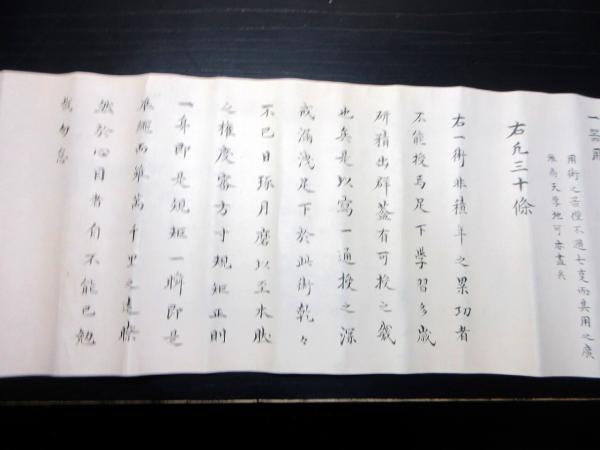 一器用
用術之器種不過七隻而其用之廣
雖高天厚地可亦盡矣
右凡三十條
右一術非積年之累功者
不能授焉足下學習多歲
研精出群蓋有可授之義
也矣是以寫一通授之深
戒漏洩足下於此術乾々
不已日琢月磨以至本肽
之權度審方寸規矩正則
一身即是規矩一瞬即是
準繩而雖萬千里之遠瞭
然於心目者有不能已勉
哉勿怠